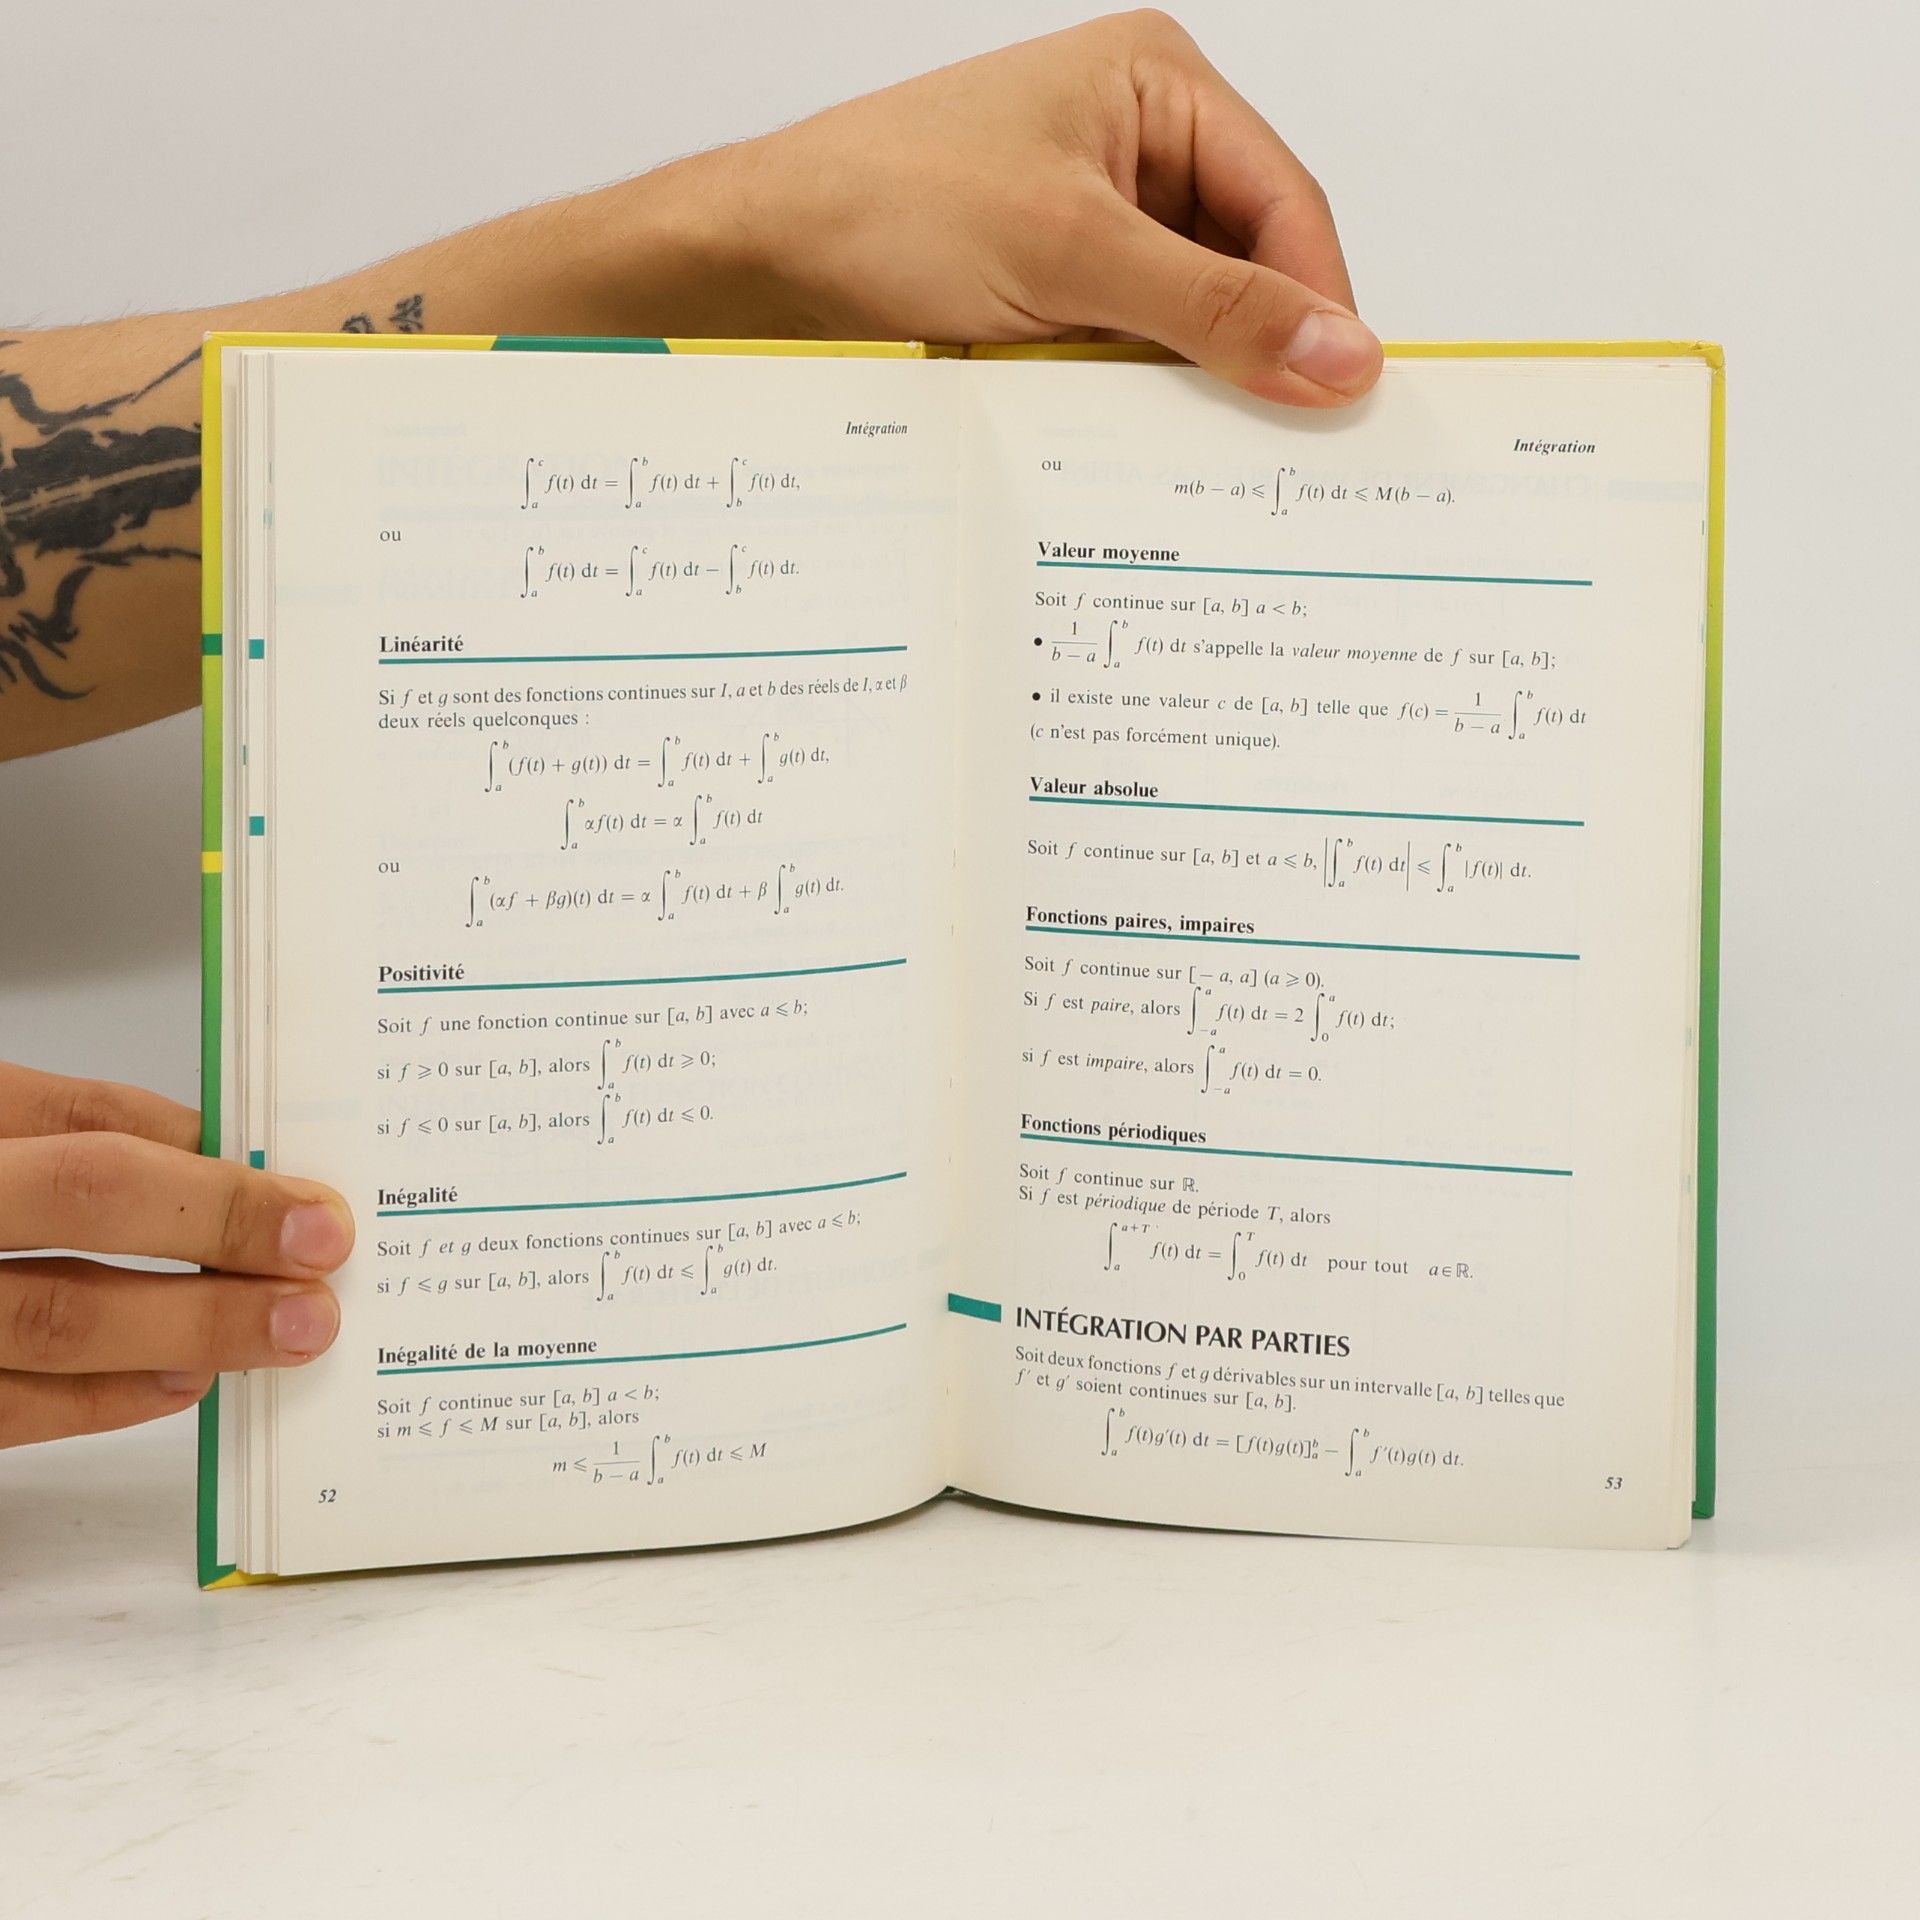 Intégration
∫_a^c f(t) dt = ∫_a^b f(t) dt + ∫_b^c f(t) dt,
ou
∫_a^b f(t) dt = ∫_a^c f(t) dt − ∫_b^c f(t) dt.
Linéarité
Si f et g sont des fonctions continues sur I, a et b des réels de I, α et β
deux réels quelconques :
∫_a^b (f(t) + g(t)) dt = ∫_a^b f(t) dt + ∫_a^b g(t) dt,
∫_a^b αf(t) dt = α ∫_a^b f(t) dt
ou
∫_a^b (αf + βg)(t) dt = α ∫_a^b f(t) dt + β ∫_a^b g(t) dt.
Positivité
Soit f une fonction continue sur [a, b] avec a ⩽ b;
si f ⩾ 0 sur [a, b], alors ∫_a^b f(t) dt ⩾ 0;
si f ⩽ 0 sur [a, b], alors ∫_a^b f(t) dt ⩽ 0.
Inégalité
Soit f et g deux fonctions continues sur [a, b] avec a ⩽ b;
si f ⩽ g sur [a, b], alors ∫_a^b f(t) dt ⩽ ∫_a^b g(t) dt.
Inégalité de la moyenne
Soit f continue sur [a, b] a < b;
si m ⩽ f ⩽ M sur [a, b], alors
m ⩽ 1/(b − a) ∫_a^b f(t) dt ⩽ M
52
Intégration
ou
m(b − a) ⩽ ∫_a^b f(t) dt ⩽ M(b − a).
Valeur moyenne
Soit f continue sur [a, b] a < b;
• 1/(b − a) ∫_a^b f(t) dt s'appelle la valeur moyenne de f sur [a, b];
• il existe une valeur c de [a, b] telle que f(c) = 1/(b − a) ∫_a^b f(t) dt
(c n'est pas forcément unique).
Valeur absolue
Soit f continue sur [a, b] et a ⩽ b, |∫_a^b f(t) dt| ⩽ ∫_a^b |f(t)| dt.
Fonctions paires, impaires
Soit f continue sur [− a, a] (a ⩾ 0).
Si f est paire, alors ∫_{−a}^a f(t) dt = 2 ∫_0^a f(t) dt;
si f est impaire, alors ∫_{−a}^a f(t) dt = 0.
Fonctions périodiques
Soit f continue sur ℝ.
Si f est périodique de période T, alors
∫_a^{a+T} f(t) dt = ∫_0^T f(t) dt pour tout a ∈ ℝ.
INTÉGRATION PAR PARTIES
Soit deux fonctions f et g dérivables sur un intervalle [a, b] telles que
f′ et g′ soient continues sur [a, b].
∫_a^b f(t)g′(t) dt = [f(t)g(t)]_a^b − ∫_a^b f′(t)g(t) dt.
53